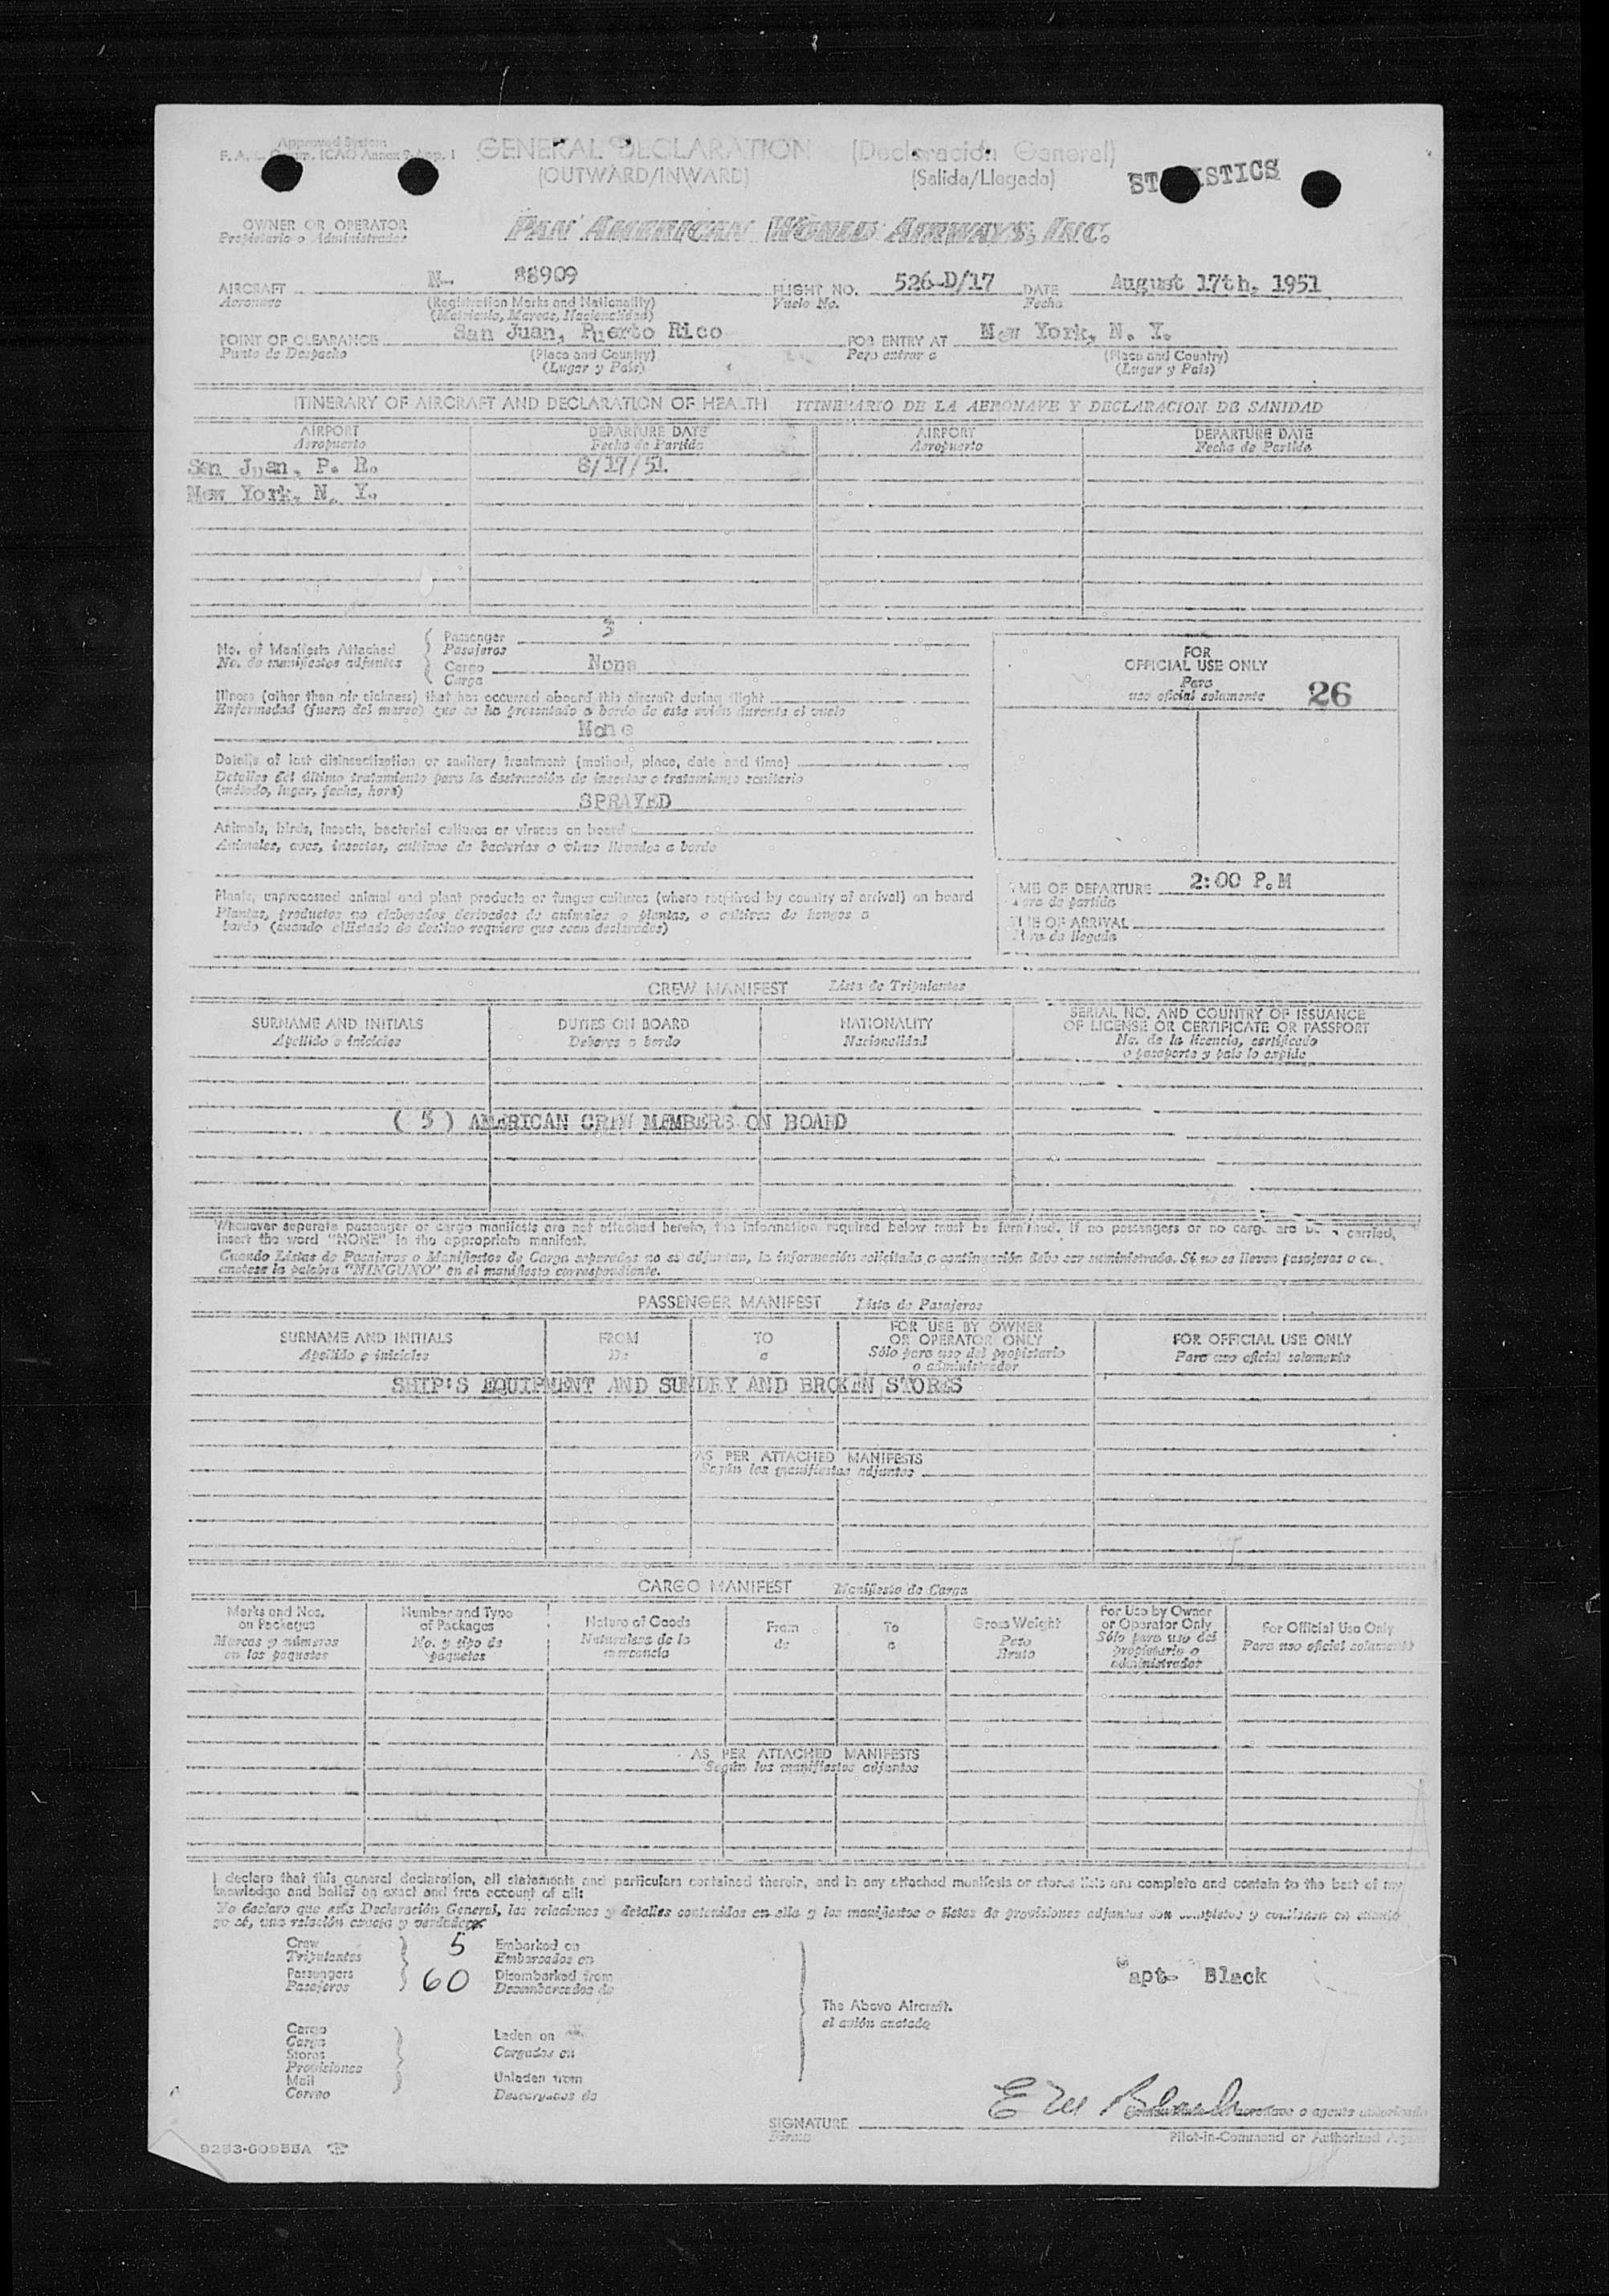 Approved System
F. A. L. Comm. ICAO Annex 9, App. 1
GENERAL DECLARATION (Declaración General)
(OUTWARD/INWARD) (Salida/Llegada)
STATISTICS
OWNER OR OPERATOR
Propietario o Administrador
PAN AMERICAN WORLD AIRWAYS, INC.
AIRCRAFT N- 88909 FLIGHT NO. 526-D/17 DATE August 17th, 1951
Aeronave (Registration Marks and Nationality) Vuelo No. Fecha
(Matricula, Marcas, Nacionalidad)
POINT OF CLEARANCE San Juan, Puerto Rico FOR ENTRY AT New York, N. Y.
Punto de Despacho (Place and Country) Para entrar a (Place and Country)
(Lugar y País) (Lugar y País)
ITINERARY OF AIRCRAFT AND DECLARATION OF HEALTH ITINERARIO DE LA AERONAVE Y DECLARACION DE SANIDAD
AIRPORT DEPARTURE DATE AIRPORT DEPARTURE DATE
Aeropuerto Fecha de Partida Aeropuerto Fecha de Partida
San Juan, P. R. 8/17/51
New York, N. Y.
No. of Manifests Attached Passenger 3
No. de manifiestos adjuntos Pasajeros
Cargo None
Carga
Illness (other than air sickness) that has occurred aboard this aircraft during flight
Enfermedad (fuera del mareo) que se ha presentado a bordo de este avión durante el vuelo
None
Details of last disinsectization or sanitary treatment (method, place, date and time)
Detalles del último tratamiento para la destrucción de insectos o tratamiento sanitario
(método, lugar, fecha, hora)
SPRAYED
Animals, birds, insects, bacterial cultures or viruses on board
Animales, aves, insectos, cultivos de bacterias o virus llevados a bordo
Plants, unprocessed animal and plant products or fungus cultures (where required by country of arrival) on board
Plantas, productos no elaborados derivados de animales o plantas, o cultivos de hongos a
bordo (cuando el Estado de destino requiere que sean declarados)
FOR
OFFICIAL USE ONLY
Para
uso oficial solamente 26
TIME OF DEPARTURE 2:00 P.M
Hora de partida
TIME OF ARRIVAL
Hora de llegada
CREW MANIFEST Lista de Tripulantes
SURNAME AND INITIALS DUTIES ON BOARD NATIONALITY SERIAL NO. AND COUNTRY OF ISSUANCE
OF LICENSE OR CERTIFICATE OR PASSPORT
Apellido e iniciales Deberes a bordo Nacionalidad No. de la licencia, certificado
o pasaporte y país lo expide
( 5 ) AMERICAN CREW MEMBERS ON BOARD
Whenever separate passenger or cargo manifests are not attached hereto, the information required below must be furnished. If no passengers or no cargo are be carried,
insert the word "NONE" in the appropriate manifest.
Cuando Listas de Pasajeros o Manifiestos de Carga separados no se adjuntan, la información solicitada a continuación debe ser suministrada. Si no se llevan pasajeros o
anotese la palabra "NINGUNO" en el manifiesto correspondiente.
PASSENGER MANIFEST Lista de Pasajeros
SURNAME AND INITIALS FROM TO FOR USE BY OWNER
OR OPERATOR ONLY FOR OFFICIAL USE ONLY
Apellido e iniciales De a Sólo para uso del propietario
o administrador Para uso oficial solamente
SHIP'S EQUIPMENT AND SUNDRY AND BROKEN STORES
AS PER ATTACHED MANIFESTS
Según los manifiestos adjuntos
CARGO MANIFEST Manifiesto de Carga
Marks and Nos.
on Packages
Marcas y números
en los paquetes
Number and Type
of Packages
No. y tipo de
paquetes
Nature of Goods
Naturaleza de la
mercancia
From
de
To
a
Gross Weight
Peso
Bruto
For Use by Owner
or Operator Only
Sólo para uso del
propietario o
administrador
For Official Use Only
Para uso oficial solamente
AS PER ATTACHED MANIFESTS
Según los manifiestos adjuntos
I declare that this general declaration, all statements and particulars contained therein, and in any attached manifests or stores lists are complete and contain to the best of my
knowledge and belief an exact and true account of all:
Yo declaro que esta Declaración General, las relaciones y detalles contenidos en ella y los manifiestos o listas de provisiones adjuntas son completos y contienen en cuanto
yo sé, una relación exacta y verdadera
Crew 5 Embarked on
Tripulantes Embarcados en
Passengers 60 Disembarked from
Pasajeros Desembarcados de
Capt- Black
The Above Aircraft.
el avión anotado
Cargo
Carga Laden on
Stores Cargados en
Provisiones
Mail Unladen from
Correo Descargados de
SIGNATURE E M Black
Firma
Comandante de aeronave o agente autorizado
Pilot-in-Command or Authorized Agent
9283-60955A